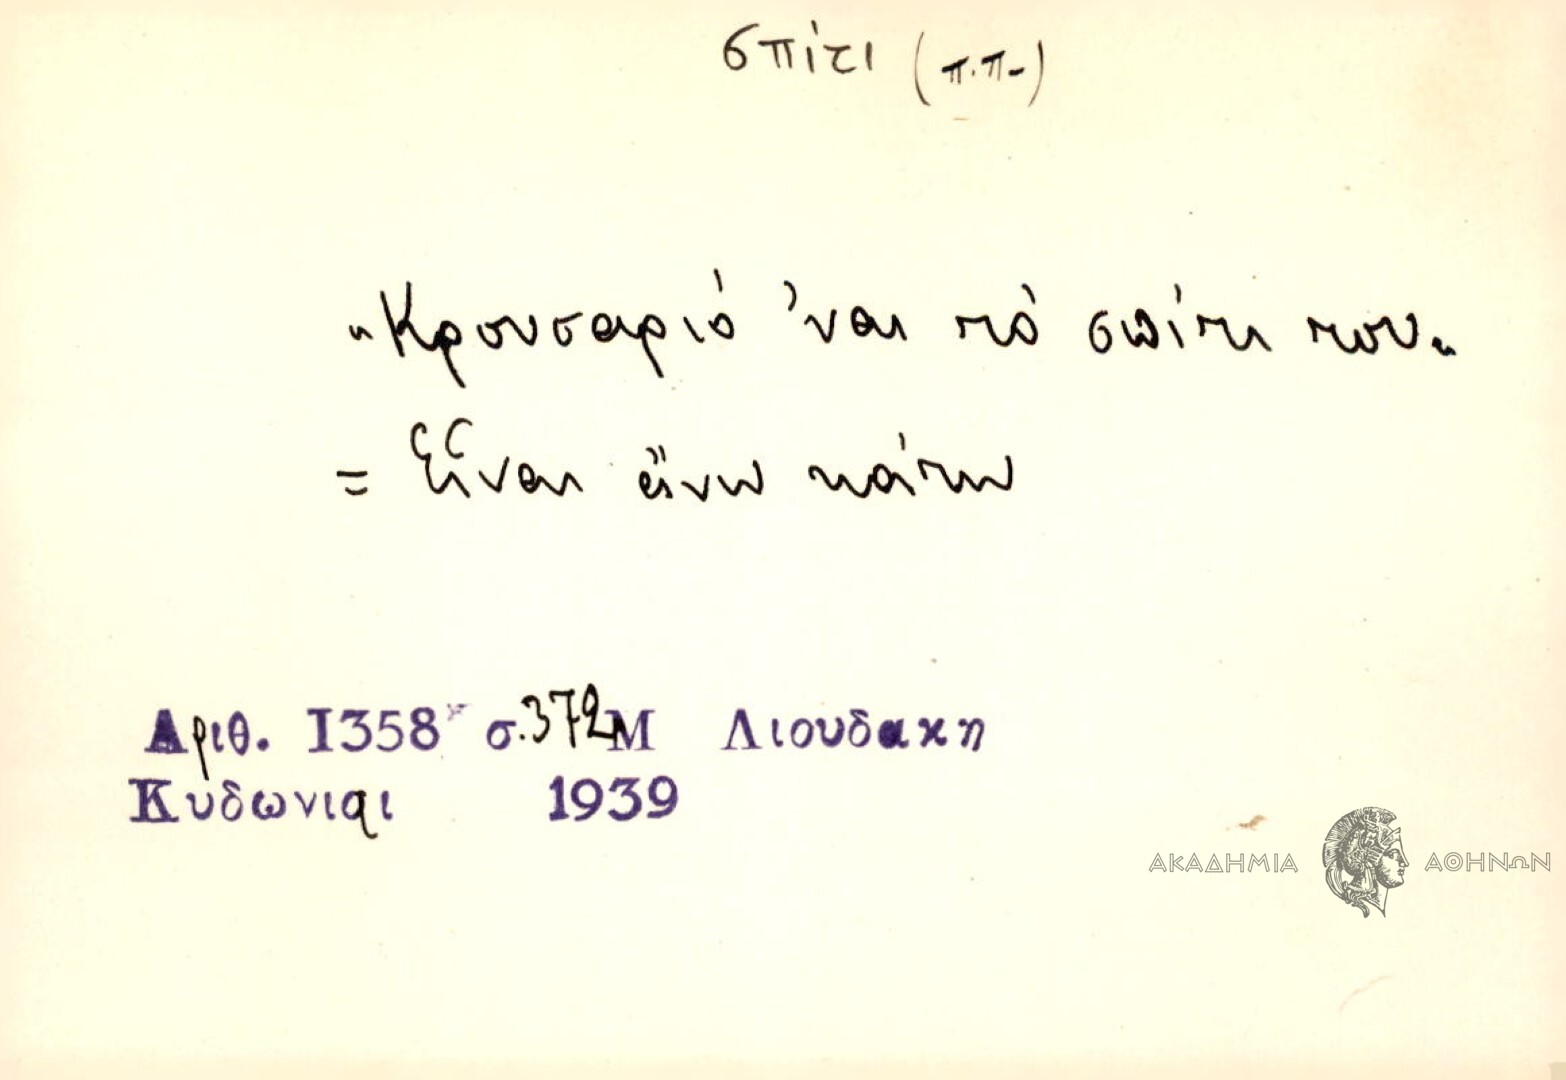 σπίτι (π.π-)
"Κρουσαριό 'ναι τὸ σπίτι του"
= Εἶναι ἄνω κάτω
Αριθ. 1358 σ.372 Μ Λιουδακη
Κυδωνιαι 1939
ΑΚΑΔΗΜΙΑ ΑΘΗΝΩΝ